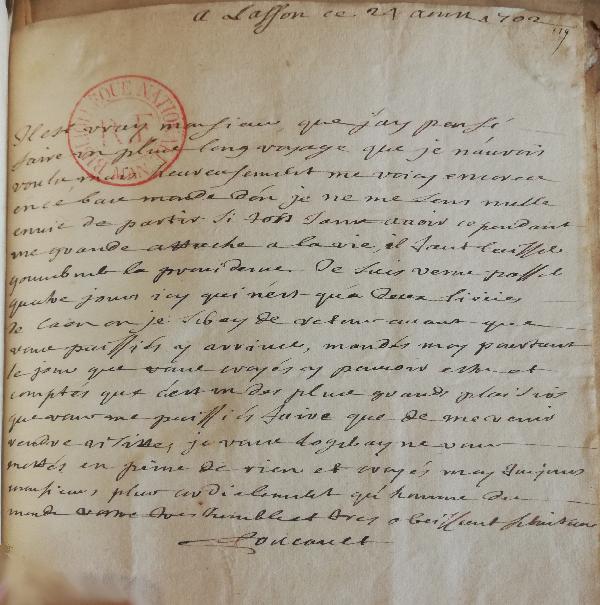 A Lasson ce 21 aoust 1702
119
BIBLIOTHEQUE NATIONALE
Il est vray monsieur que j'ay pensé
faire un plus long voyage que je n'auois
voulu mais heureusement me voicy encorea
en ce bas monde d'ou je ne me sens nulle
enuie de partir si tost sans auoir cependant
une grande attache a la vie, il faut laisser
gouuerner la prouidence. Je suis venu passer
quatre jours icy qui n'est qu'a deux lieües
de Caen ou je seray de retour auant que
vous puissiés y arriuer, mandés moy pourtant
le jour que vous croyés y pouuoir estre et
comptés que c'est un des plus grands plaisirs
que vous me puissiés faire que de me venir
rendre visitte, je vous logeray ne vous
mettés en peine de rien et croyés moy toujours
monsieur plus cordialement qu'homme du
monde vostre tres humble et tres obeissant seruiteur
Foucault